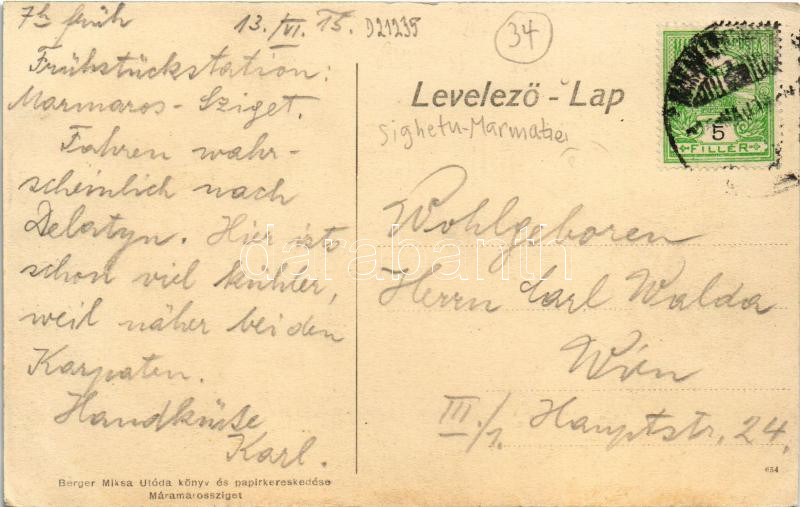 7h früh 13./VI. 15. D21235
34
Frühstückstation:
Marmaros-Sziget.
Fahren wahr-
scheinlich nach
Delatyn. Hier ist
schon viel kühler,
weil näher bei den
Karpaten.
Handküsse
Karl.
Levelező-Lap
Sighetu-Marmatiei
5
FILLÉR
Wohlgeboren
Herrn Carl Walda
Wien
III./1. Hauptstr. 24.
darabanth
Berger Miksa Utóda könyv és papirkereskedése
Máramarossziget
654